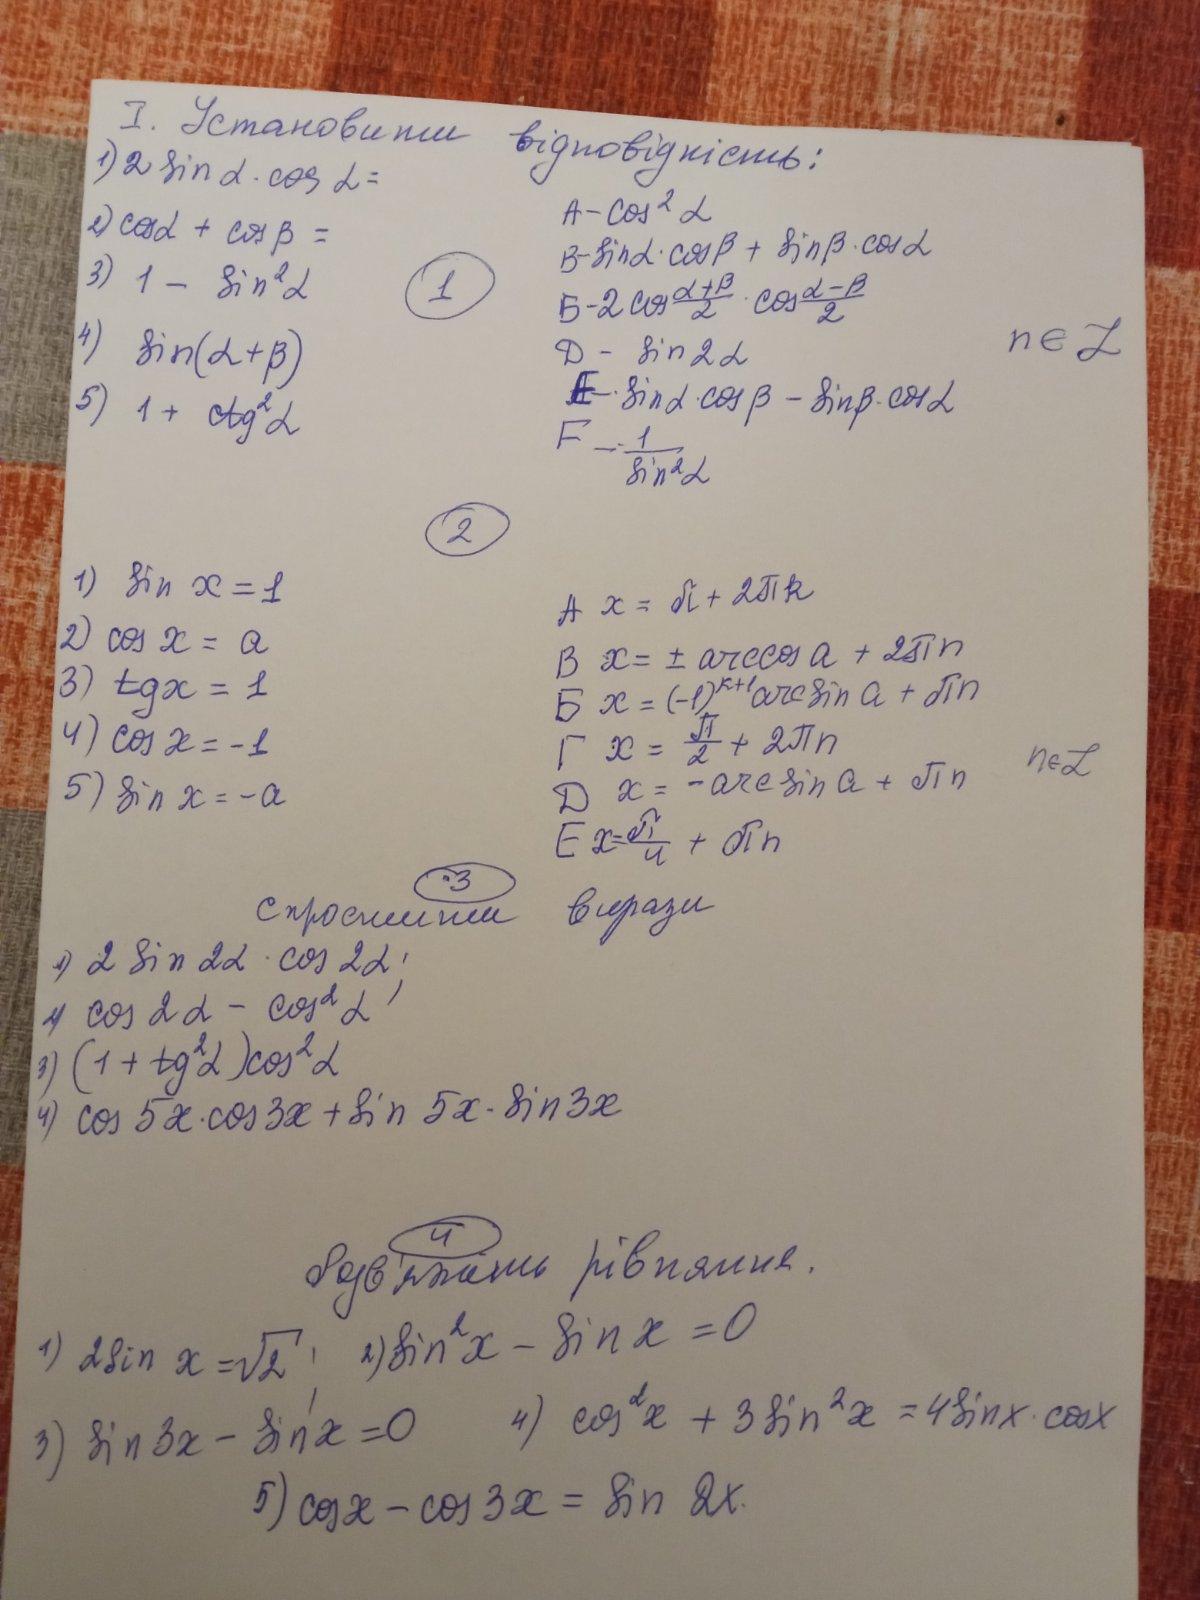 I. Установити відповідність:
1) 2 sin α · cos α =
2) cos α + cos β =
3) 1 - sin² α
4) sin(α + β)
5) 1 + ctg² α
1
А - cos² α
В - sin α · cos β + sin β · cos α
Б - 2 cos (α+β)/2 · cos (α-β)/2
Д - sin 2α
Е - sin α · cos β - sin β · cos α
F - 1/sin² α
n ∈ Z
2
1) sin x = 1
2) cos x = a
3) tg x = 1
4) cos x = -1
5) sin x = -a
А x = π + 2πk
В x = ± arccos a + 2πn
Б x = (-1)^(k+1) arcsin a + πn
Г x = π/2 + 2πn
Д x = - arcsin a + πn
Е x = π/4 + πn
n ∈ Z
3
спростити вирази
1) 2 sin 2α · cos 2α;
2) cos 2α - cos² α;
3) (1 + tg² α) cos² α
4) cos 5x · cos 3x + sin 5x · sin 3x
4
Розв'яжіть рівняння.
1) 2 sin x = √2; 2) sin² x - sin x = 0
3) sin 3x - sin x = 0 4) cos² x + 3 sin² x = 4 sin x · cos x
5) cos x - cos 3x = sin 2x.